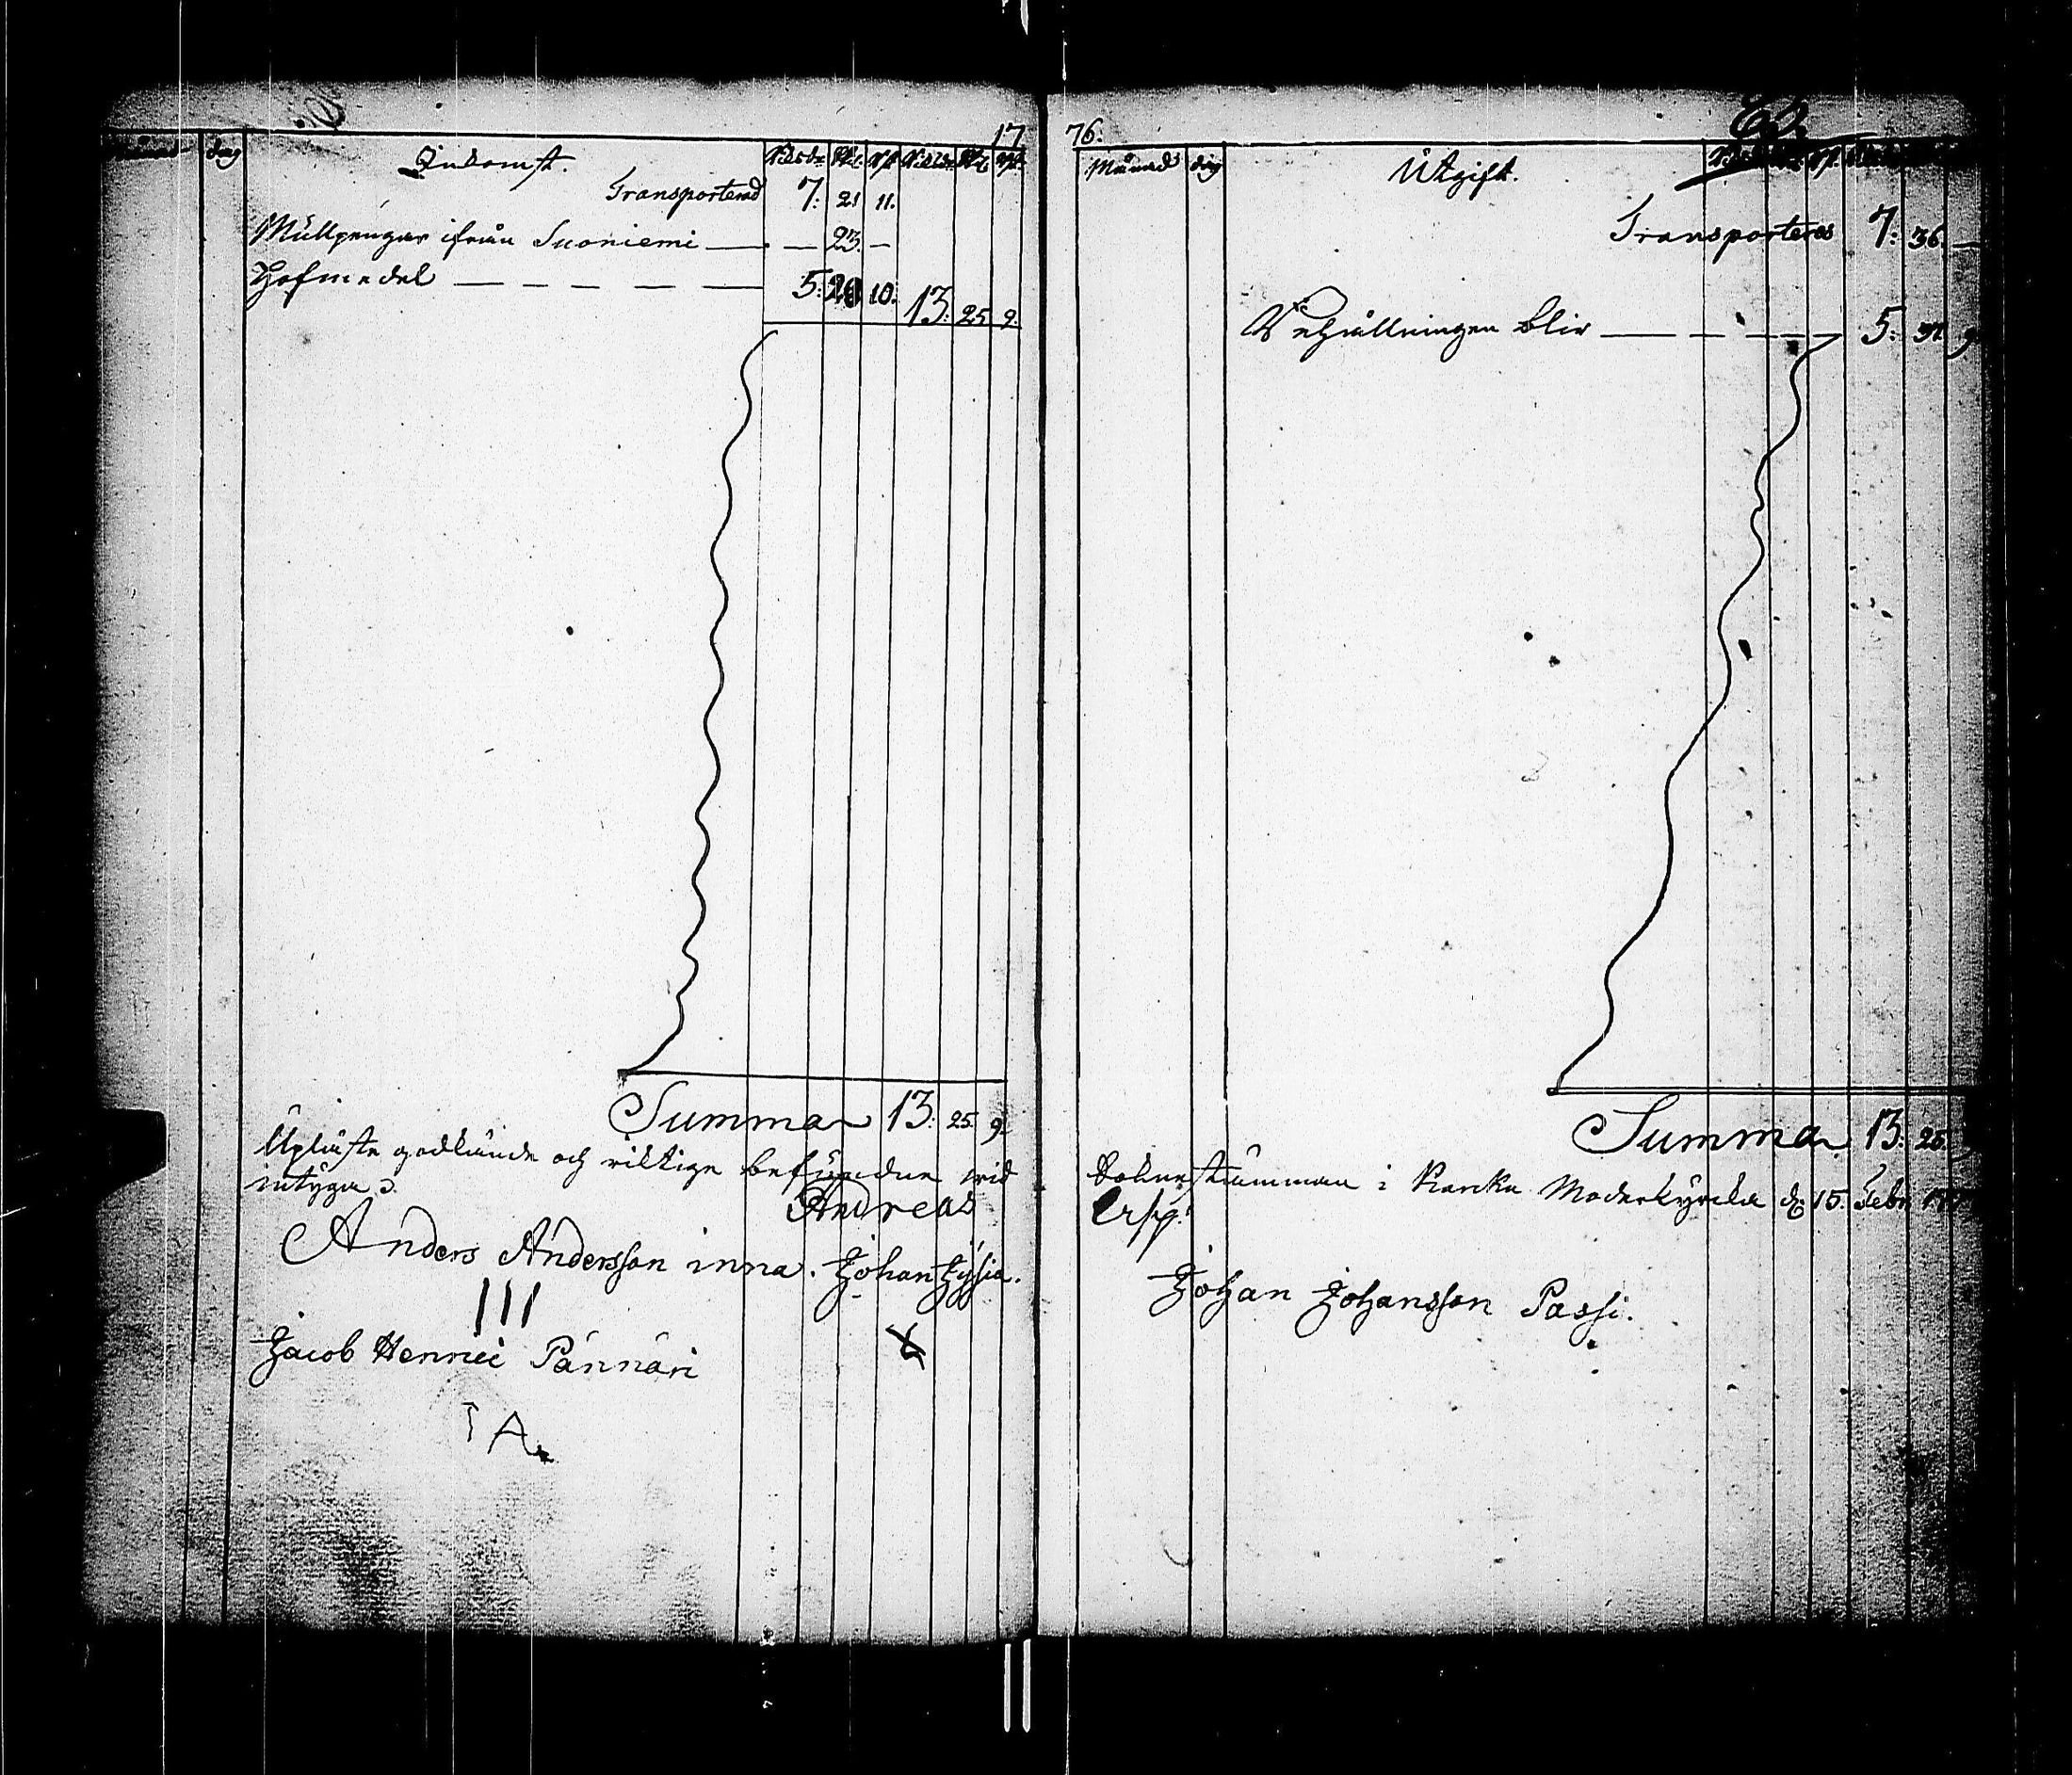 17
Månad dag Inkomst. Riksdr Skl. rst. Riksdr Skl. rst.
Transporterad 7: 21 11.
Mullpengar ifrån Suoniemi — — 23. —
Håfmedel — — — — — 5: 20 10. 13: 25 9.
Summa 13: 25. 9.
Upläste godkände och riktige befundne wid
intyga
Andreas
Anders Andersson inna. Johan Jysia.
III
Jacob Henrici Pännäri
A
76.
62.
Månad dag Utgift.
Transporteras 7: 36. —
Behållningen blir — — — — 5: 37. 9
Summa 13: 25.
Soknestämman i Karku Moderkyrka d. 15. Febr. 177
Johan Johansson Passi.